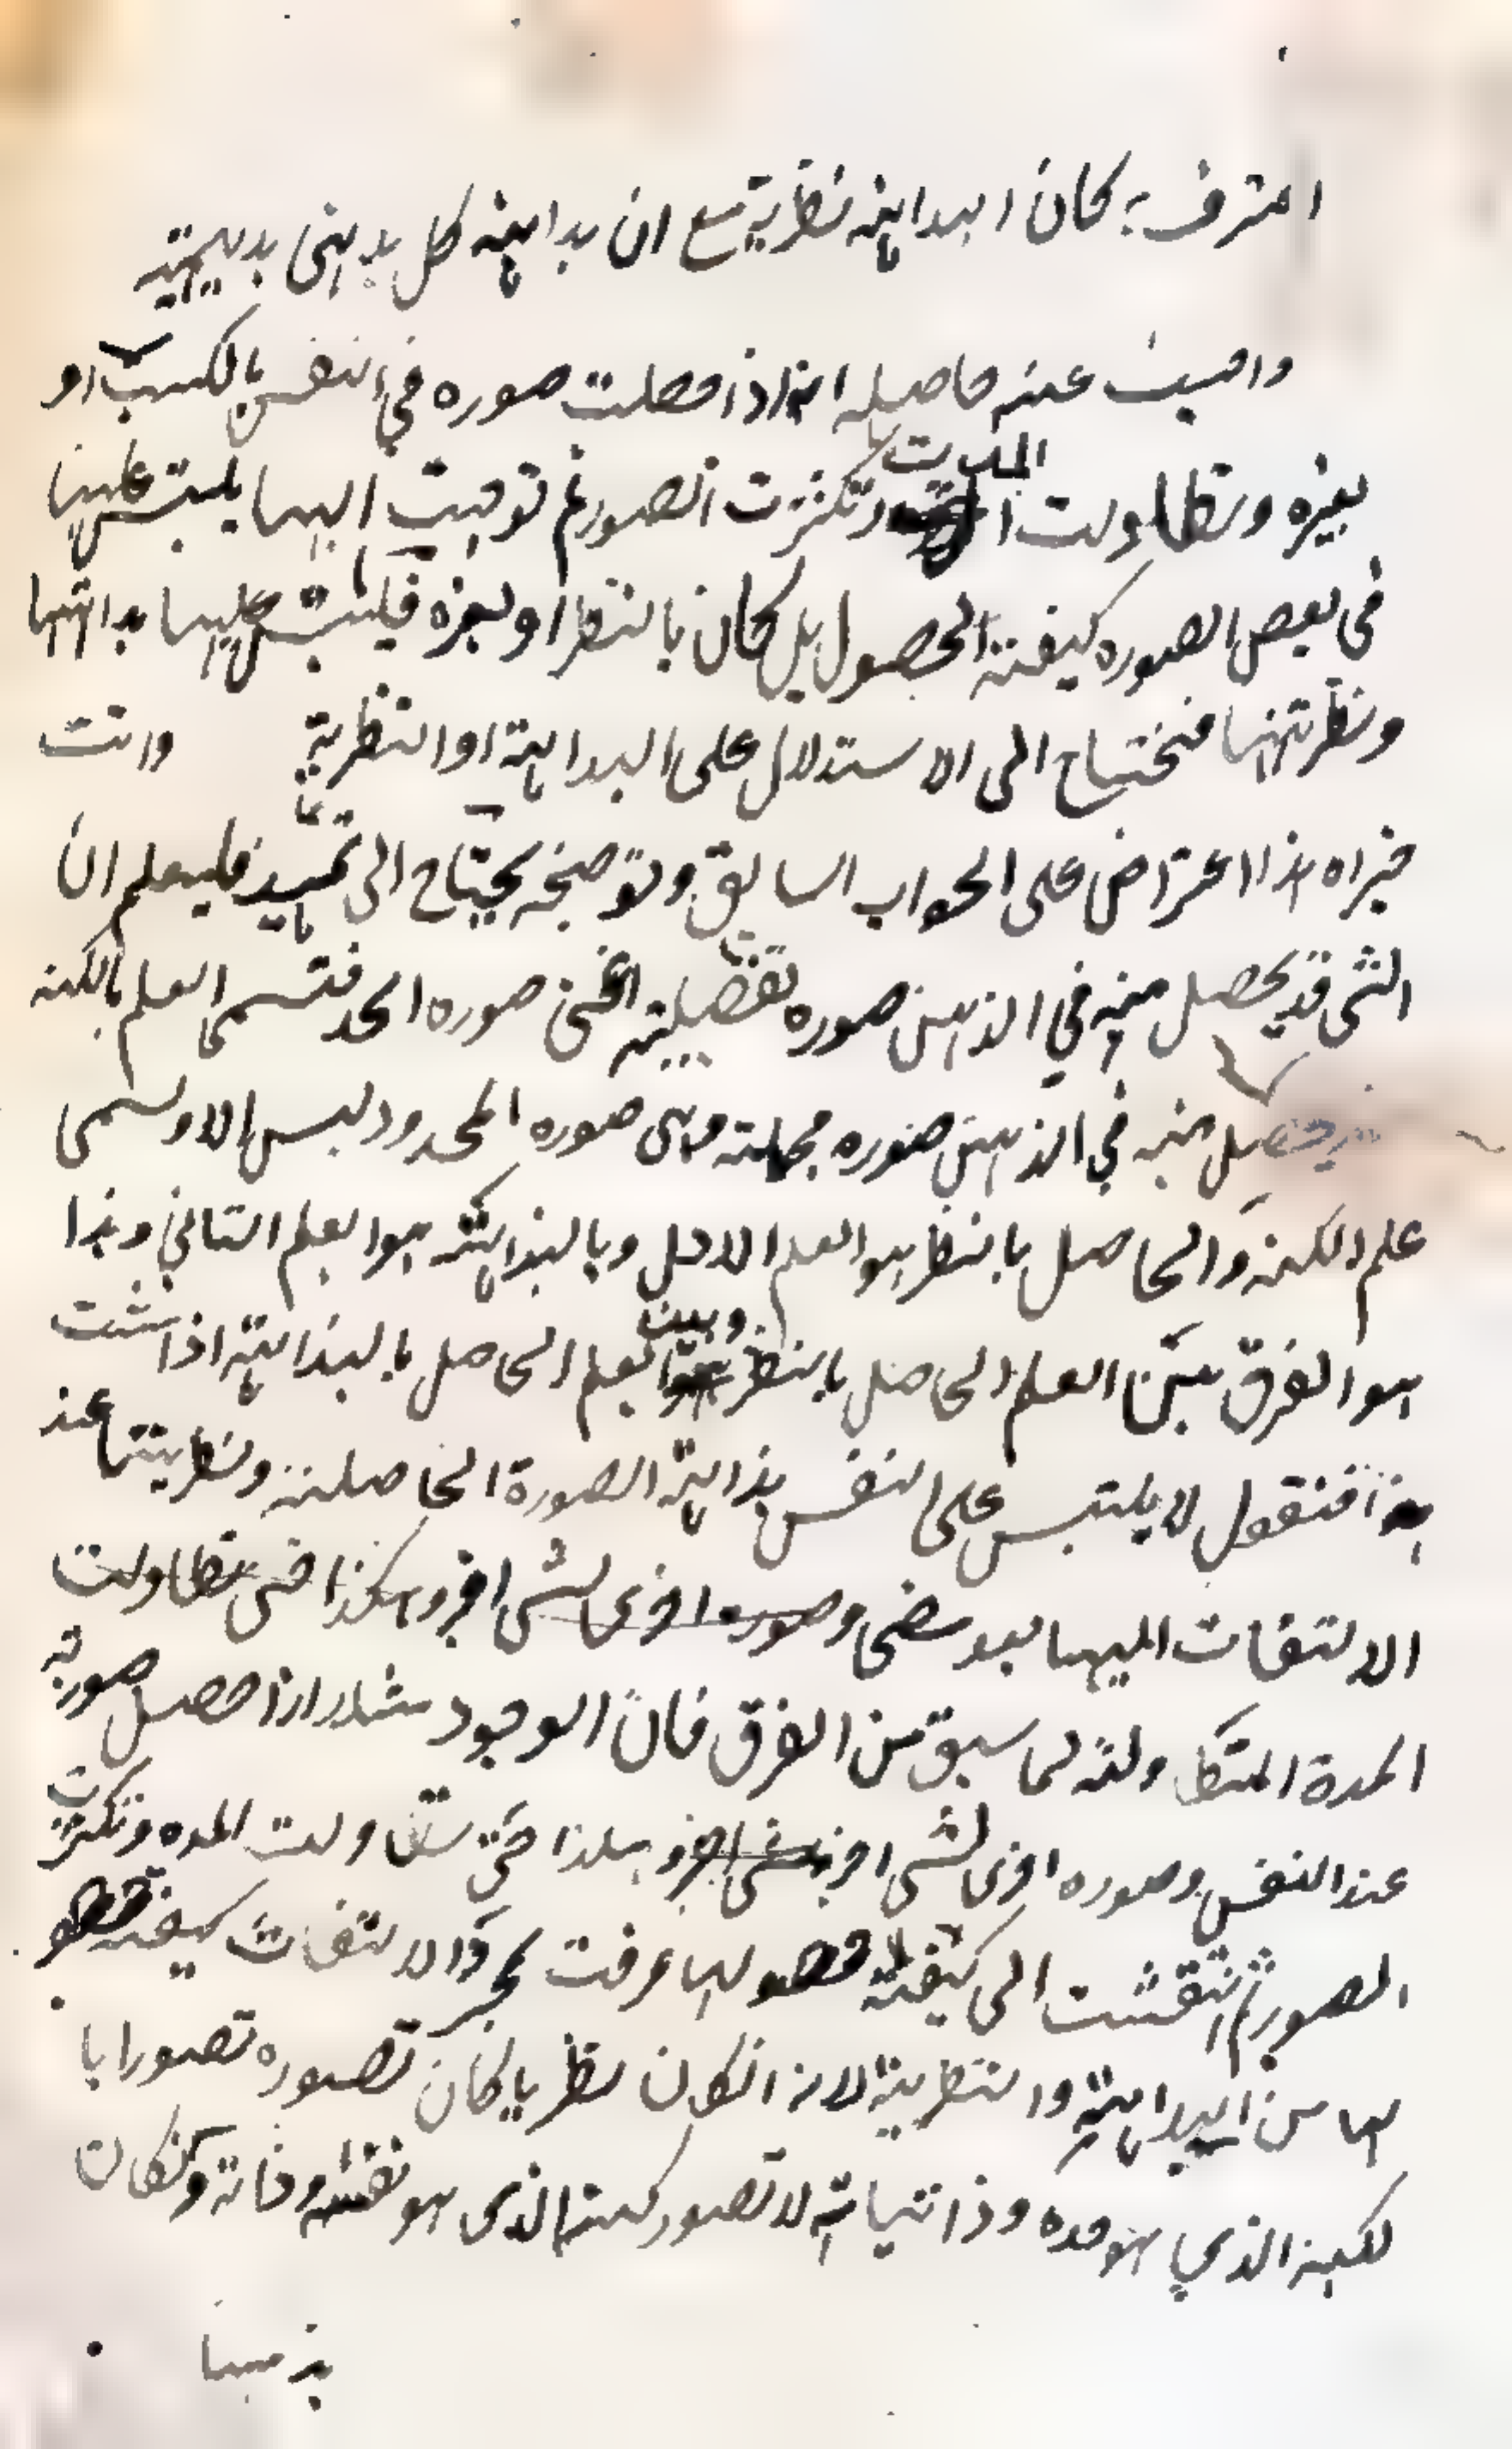 اعترف به كان البداهة نظرية مع ان بداهة كل بديهى بديهية
واجيب عنه حاصله انه اذا حصلت صوره في النفس بالكسب او
بغيره وتطاولت المدت وتكثرت الصور ثم توجهت اليها يلتبس عليها
في بعض الصوره كيفية الحصول بل كان بالنظر او بغيره فيلتبس عليها بداهتها
ونظريتها فتحتاج الى الاستدلال على البداهة او النظرية وانت
خبر اه هذا اعتراض على الجواب السابق وتوضيحه يحتاج الى تمهيد فليعلم ان
الشى قد يحصل منه في الذهن صوره تفصيلية اعنى صوره الحد فتسمى العلم بالكنه
يحصل منه في الذهن صوره مجملة وهى صوره المحدود ليس الا وتسمى
علم الكنه والحاصل بالنظر هو العلم الاول وبالبداهة هو العلم الثاني وهذا
هو الفرق بين العلم الحاصل بالنظر وبين العلم الحاصل بالبداهة اذا ثبت
هذا فنقول لا يلتبس على النفس بداهة الصورة الحاصلة ونظريتها عند
الالتفات اليها بعد مضى وصوره اخرى لشى اخر وهكذا حتى تطاولت
المدة المتطاولة لما سبق من الفرق فان الوجود مثلا اذا حصل صورته
عند النفس وصوره اخرى لشى اخر وهكذا حتى تطاولت المده وتكثرت
الصور ثم التفتت الى كيفية حصولها عرفت بمجرد الالتفات كيفية حصو
لها من البداهة والنظرية لانه انكان نظريا كان تصوره تصورا با
لكنه الذي هو حده وذاتياته لا تصور كنهه الذى هو نفسه وذاته وانكان
بديهيا